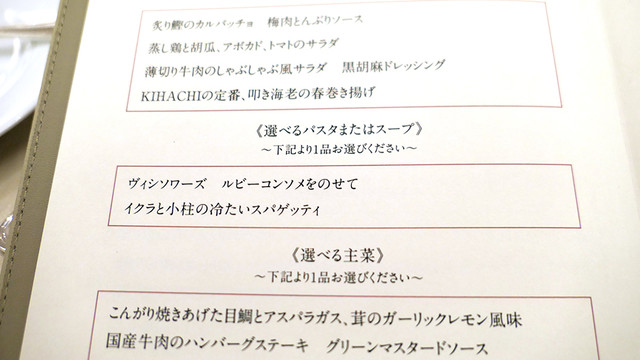 炙り鰹のカルパッチョ　梅肉とんぶりソース
蒸し鶏と胡瓜、アボカド、トマトのサラダ
薄切り牛肉のしゃぶしゃぶ風サラダ　黒胡麻ドレッシング
KIHACHIの定番、叩き海老の春巻き揚げ
《選べるパスタまたはスープ》
～下記より1品お選びください～
ヴィシソワーズ　ルビーコンソメをのせて
イクラと小柱の冷たいスパゲッティ
《選べる主菜》
～下記より1品お選びください～
こんがり焼きあげた目鯛とアスパラガス、茸のガーリックレモン風味
国産牛肉のハンバーグステーキ　グリーンマスタードソース